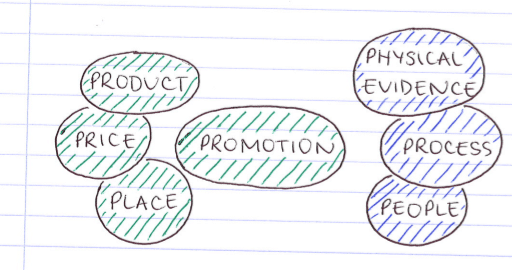 PRODUCT
PRICE
PLACE
PROMOTION
PHYSICAL
EVIDENCE
PROCESS
PEOPLE